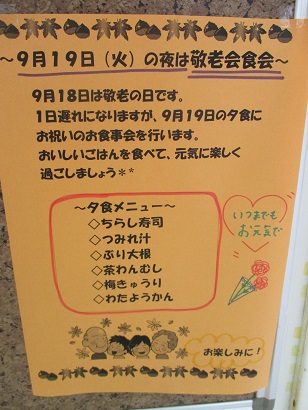 ～9月19日（火）の夜は敬老会食会～
9月18日は敬老の日です。
1日遅れになりますが、9月19日の夕食に
お祝いのお食事会を行います。
おいしいごはんを食べて、元気に楽しく
過ごしましょう＊＊
～夕食メニュー～
◇ちらし寿司
◇つみれ汁
◇ぶり大根
◇茶わんむし
◇梅きゅうり
◇わたようかん
いつまでも
お元気で
お楽しみに！